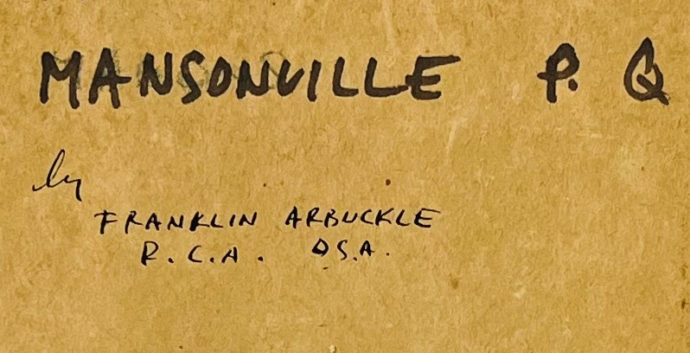 MANSONVILLE P. Q
by
FRANKLIN ARBUCKLE
R.C.A. OSA.